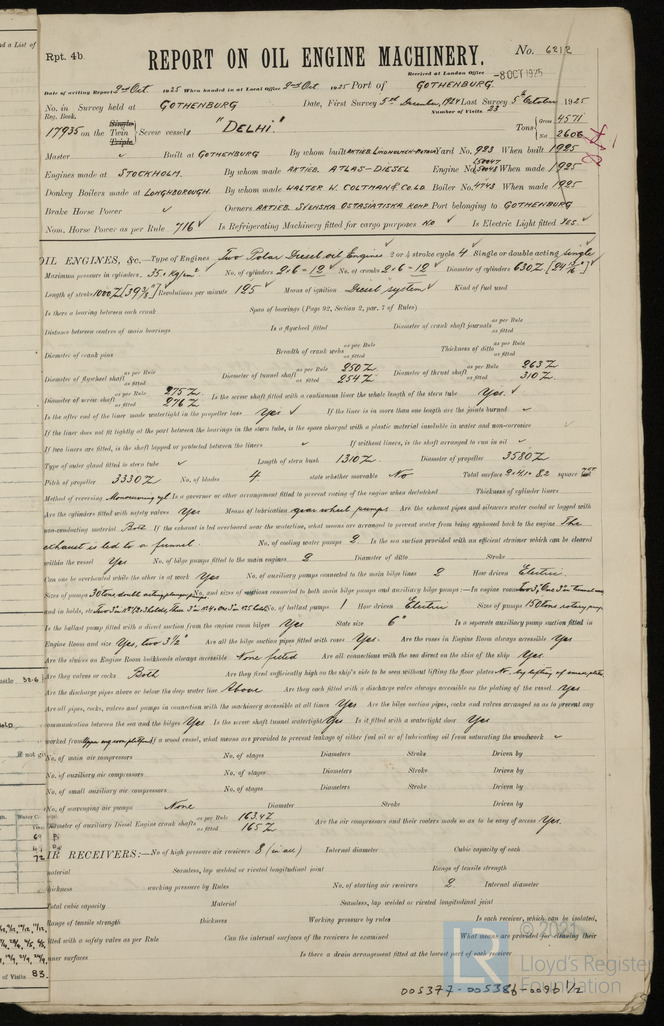 Rpt. 4b.
REPORT ON OIL ENGINE MACHINERY.
No. 6212
Received at London Office -8 OCT 1925
Date of writing Report 2nd Oct. 1925 When handed in at Local Office 2nd Oct 1925 Port of GOTHENBURG.
No. in Survey held at GOTHENBURG Date, First Survey 5th December, 1924 Last Survey 5th October 1925
Reg. Book. Number of Visits 23
17935 on the Single Twin Triple Screw vessel "DELHI." Tons Gross 4571 Net 2606
Master Built at GOTHENBURG By whom built Yard No. 923 When built 1925
Engines made at STOCKHOLM. By whom made AKTIEB. ATLAS-DIESEL Engine No. When made 1925
Donkey Boilers made at LOUGHBOROUGH. By whom made WALTER W. COLTMAN & Co Ld. Boiler No. 4743 When made 1925
Brake Horse Power Owners AKTIEB. SVENSKA OSTASIATISKA KOMP Port belonging to GOTHENBURG
Nom. Horse Power as per Rule 716 Is Refrigerating Machinery fitted for cargo purposes NO Is Electric Light fitted YES.
OIL ENGINES, &c.—Type of Engines Two Polar Diesel oil Engines 2 or 4 stroke cycle 4 Single or double acting single
Maximum pressure in cylinders 35. Kg/cm² No. of cylinders 2·6 - 12 No. of cranks 2·6 - 12 Diameter of cylinders 630
Length of stroke 1000 Revolutions per minute 125 Means of ignition Diesel system Kind of fuel used
Is there a bearing between each crank Span of bearings (Page 92, Section 2, par. 7 of Rules)
Distance between centres of main bearings Is a flywheel fitted Diameter of crank shaft journals as per Rule as fitted
Diameter of crank pins Breadth of crank webs as per Rule as fitted Thickness of ditto as per Rule as fitted
Diameter of flywheel shaft as per Rule as fitted Diameter of tunnel shaft as per Rule 250 as fitted 254 Diameter of thrust shaft as per Rule 263 as fitted 310
Diameter of screw shaft as per Rule 275 as fitted 276 Is the screw shaft fitted with a continuous liner the whole length of the stern tube Yes.
Is the after end of the liner made watertight in the propeller boss Yes If the liner is in more than one length are the joints burned
If the liner does not fit tightly at the part between the bearings in the stern tube, is the space charged with a plastic material insoluble in water and non-corrosive
If two liners are fitted, is the shaft lapped or protected between the liners If without liners, is the shaft arranged to run in oil
Type of outer gland fitted to stern tube Length of stern bush 1310 Diameter of propeller 3580
Pitch of propeller 3330 No. of blades 4. state whether moveable No Total surface square feet
Method of reversing Is a governor or other arrangement fitted to prevent racing of the engine when declutched Thickness of cylinder liners
Are the cylinders fitted with safety valves Yes Means of lubrication gear wheel pumps Are the exhaust pipes and silencers water cooled or lagged with
non-conducting material Both If the exhaust is led overboard near the waterline, what means are arranged to prevent water from being syphoned back to the engine The
exhaust is led to a funnel. No. of cooling water pumps 2 Is the sea suction provided with an efficient strainer which can be cleared
within the vessel Yes No. of bilge pumps fitted to the main engines 2 Diameter of ditto Stroke
Can one be overhauled while the other is at work Yes No. of auxiliary pumps connected to the main bilge lines 2 How driven Electric.
Sizes of pumps 30 tons double acting plunger pumps. No. and sizes of suctions connected to both main bilge pumps and auxiliary bilge pumps:—In engine room
and in holds, &c No. of ballast pumps 1 How driven Electric Sizes of pumps 150 tons rotary pump
Is the ballast pump fitted with a direct suction from the engine room bilges Yes State size 6" Is a separate auxiliary pump suction fitted in
Engine Room and size Yes, two 3½" Are all the bilge suction pipes fitted with roses Yes. Are the roses in Engine Room always accessible Yes
Are the sluices on Engine Room bulkheads always accessible None fitted Are all connections with the sea direct on the skin of the ship Yes.
Are they valves or cocks Both Are they fixed sufficiently high on the ship's side to be seen without lifting the floor plates No. by lifting of
Are the discharge pipes above or below the deep water line Above Are they each fitted with a discharge valve always accessible on the plating of the vessel Yes.
Are all pipes, cocks, valves and pumps in connection with the machinery accessible at all times Yes Are the bilge suction pipes, cocks and valves arranged so as to prevent any
communication between the sea and the bilges Yes Is the screw shaft tunnel watertight Yes Is it fitted with a watertight door Yes
worked from If a wood vessel, what means are provided to prevent leakage of either fuel oil or of lubricating oil from saturating the woodwork
No. of main air compressors No. of stages Diameters Stroke Driven by
No. of auxiliary air compressors No. of stages Diameters Stroke Driven by
No. of small auxiliary air compressors No. of stages Diameters Stroke Driven by
No. of scavenging air pumps None Diameter Stroke Driven by
Diameter of auxiliary Diesel Engine crank shafts as per Rule 163.4 as fitted 165 Are the air compressors and their coolers made so as to be easy of access Yes.
AIR RECEIVERS:—No. of high pressure air receivers 8 (in all) Internal diameter Cubic capacity of each
material Seamless, lap welded or riveted longitudinal joint Range of tensile strength
thickness working pressure by Rules No. of starting air receivers 2 Internal diameter
Total cubic capacity Material Seamless, lap welded or riveted longitudinal joint
Range of tensile strength thickness Working pressure by rules Is each receiver, which can be isolated,
fitted with a safety valve as per Rule Can the internal surfaces of the receivers be examined What means are provided for cleaning their
inner surfaces Is there a drain arrangement fitted at the lowest part of each receiver
© 2021
LR
Lloyd's Register
Foundation
005377-005386-0090 1/2
of Visits 83.